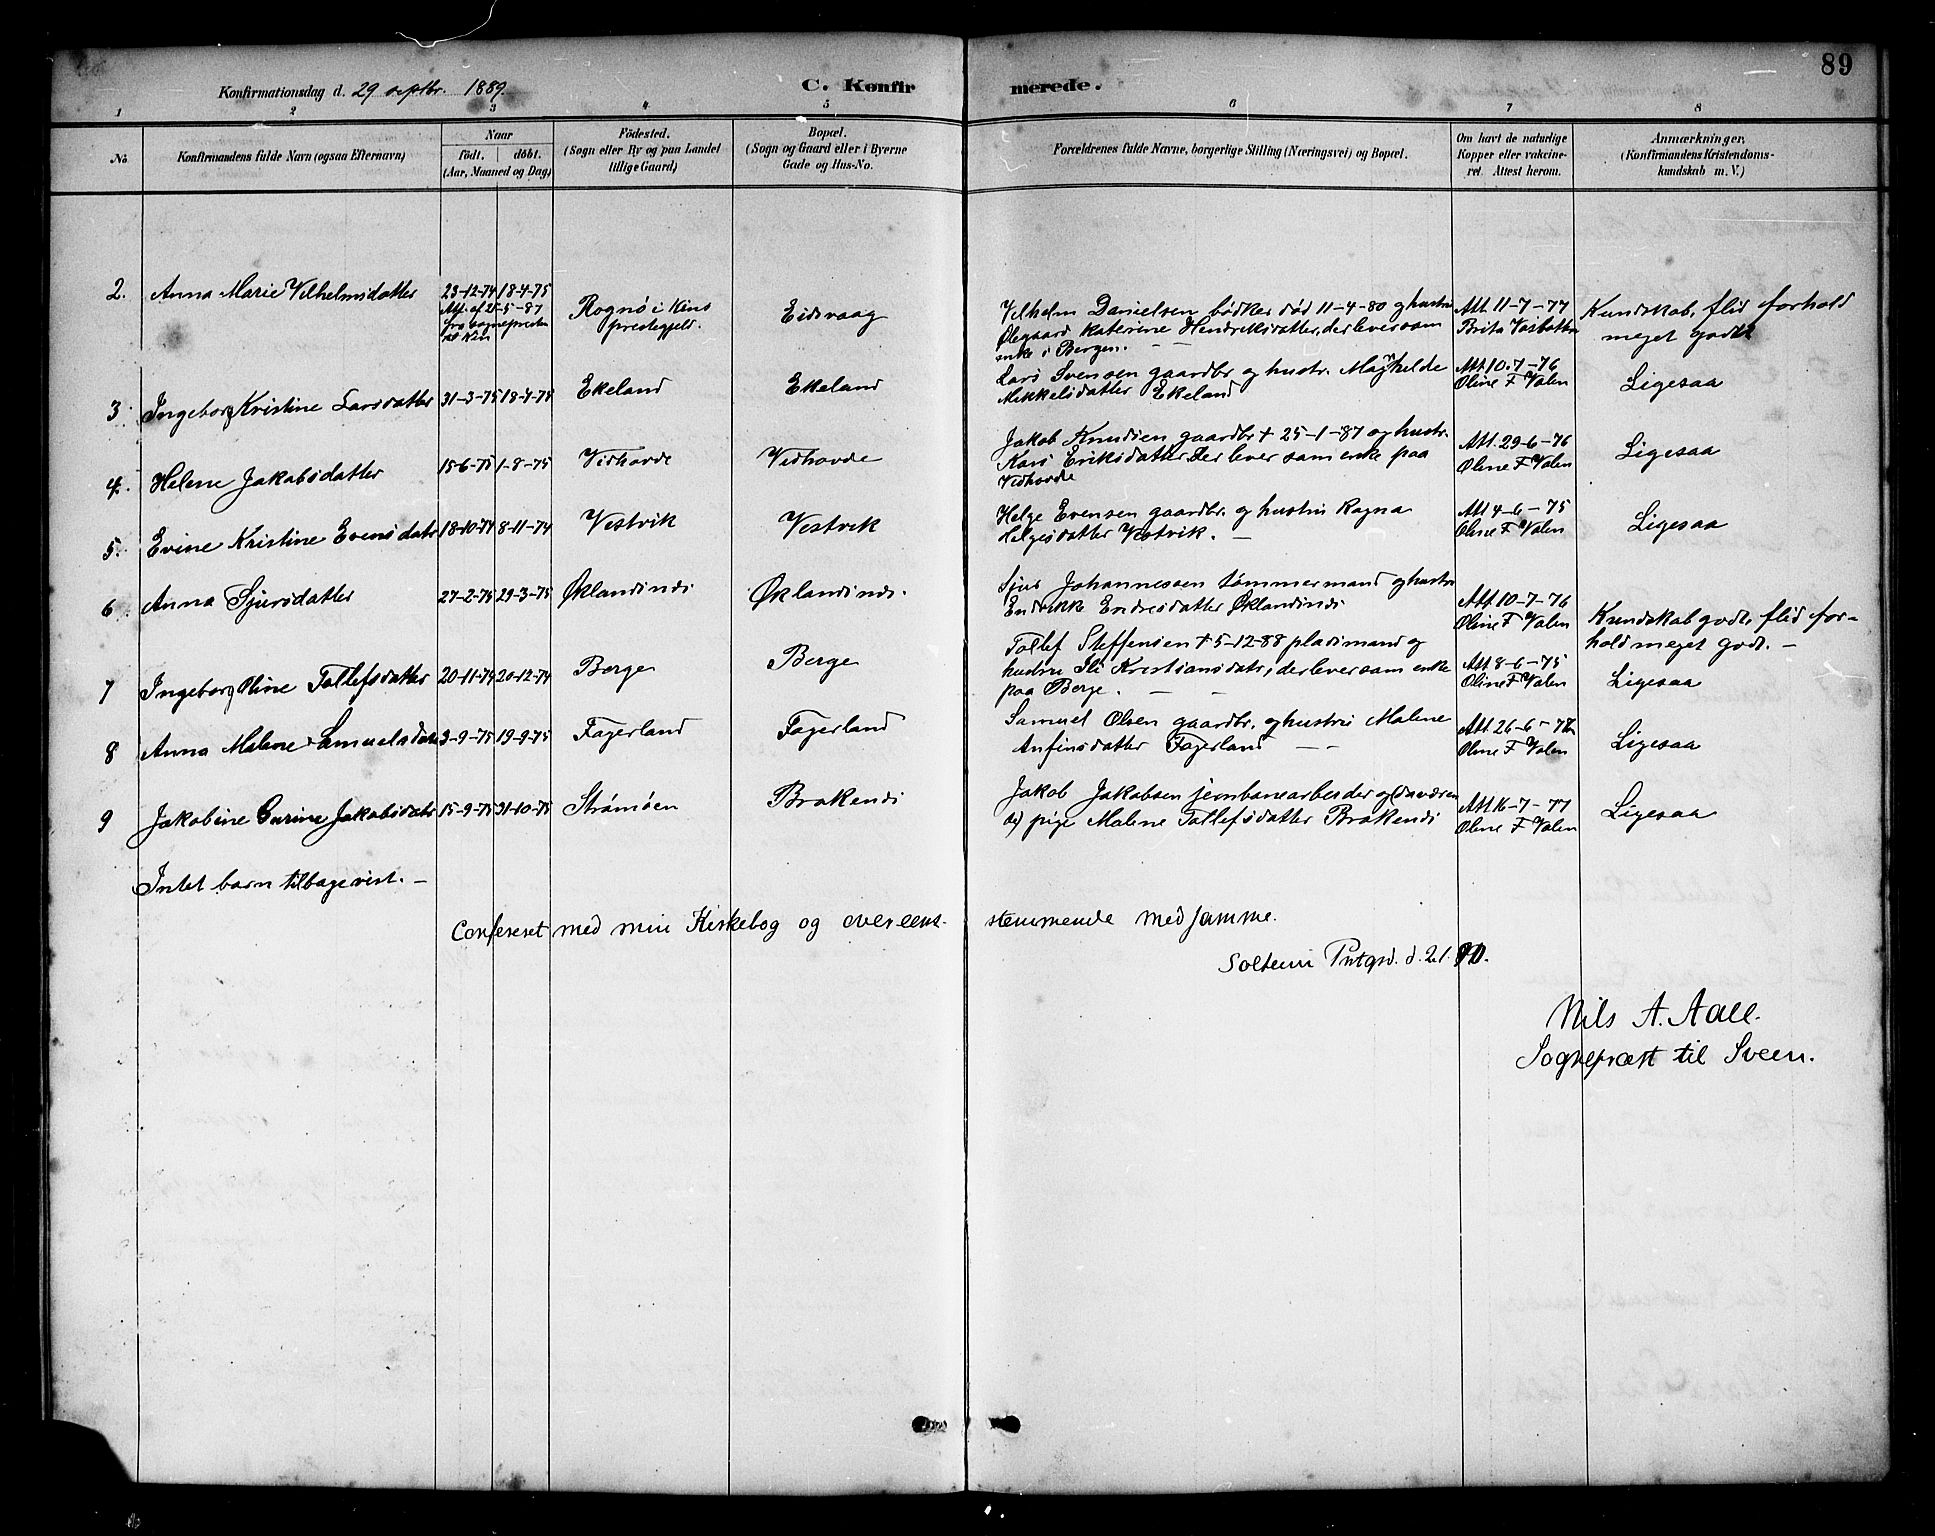 89
Konfirmationsdag d. 29 septbr. 1889. C. Konfirmerede.
1 2 3 4 5 6 7 8
No.
Konfirmandens fulde Navn (ogsaa Efternavn)
Naar
födt. döbt.
(Aar, Maaned og Dag)
Födested.
(Sogn eller By og paa Landet
tillige Gaard)
Bopæl.
(Sogn og Gaard eller i Byerne
Gade og Hus-No.
Forældrenes fulde Navne, borgerlige Stilling (Næringsvei) og Bopæl.
Om havt de naturlige
Kopper eller vakcine-
ret. Attest herom.
Anmærkninger,
(Konfirmandens Kristendoms-
kundskab m. V.)
2. Anna Marie Vilhelmsdatter
23-12-74 18-4-75
Att. af 25-5-87
fra sognepresten
til Kin
Rognø i Kins
prestegjeld.
Eidsvaag
Vilhelm Danielsen bødker død 11-4-80 og hustru
Olegaard Katerine Hendriksdatter, der lever som
enke i Bergen. — —
Att 11-7-77
Brita
Kundskab, flid forhold
meget godt
3. Ingeborg Kristine Larsdatter
31-3-75 18-4-75
Ekeland
Ekeland
Lars Svensen gaardbr. og hustr. Magnhilde
Mikkelsdatter Ekeland
Att 10-7-76
Oline F Valen
Ligesaa
4. Helene Jakobsdatter
15-6-75 1-8-75
Vidhovde
Vidhovde
Jakob Knudsen gaardbr † 25-1-87 og hustr.
Kari Eriksdatter der lever som enke paa
Vidhovde
Att. 29-6-76
Oline F Valen
Ligesaa
5. Evine Kristine Evensdatr
18-10-74 8-11-74
Vestvik
Vestvik
Helge Evensen gaardbr. og hustru Ragna
Helgesdatter Vestvik. —
Att 4-6-75
Oline F Valen
Ligesaa
6. Anna Sjursdatter
27-2-75 29-3-75
Øklandinds
Øklandinds.
Sjur Johannessen tømmermand og hustru
Endrikke Endresdatter Øklandinds
Att 10-7-76
Oline F Valen
Kundskab godt, flid for-
hold meget godt. —
7 Ingeborg Oline Tollefsdatter
20-11-74 20-12-74
Berge
Berge
Tollef Steffensen † 5-12-88 pladsmand og
hustru Ili Kristiansdatr, der lever som enke
paa Berge. — —
Att 8-6-75
Oline F Valen
Ligesaa
8 Anna Malene Samuelsdatr
3-9-75 19-9-75
Fagerland
Fagerland
Samuel Olsen gaardbr. og hustru Malene
Anfinsdatter Fagerland — —
Att 26-6-77
Oline F Valen
Ligesaa
9 Jakobine Gurine Jakobsdatr
15-9-75 31-10-75
Strømøen
Brakends
Jakob Jakobsen jernbanearbeider og (daværen
de) pige Malene Tollefsdatter Brakends
Att 16-7-77
Oline F Valen
Ligesaa
Intet barn tilbagevist. —
Confereret med min Kirkebog og overeens- stemmende med samme.
Soltein Pntgrd. d. 2.1. 90.
Nils A. Aall.
Sognepræst til Sveen.